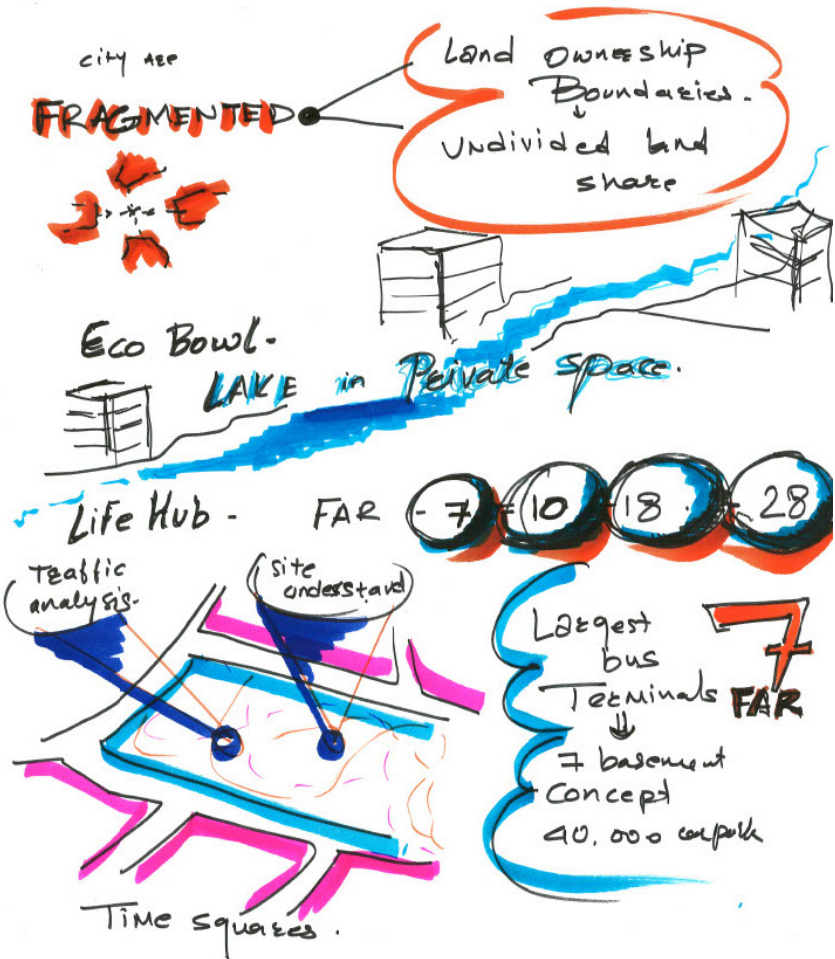 city are
FRAGMENTED
Land ownership
Boundaries.
Undivided land
share
Eco Bowl-
LAKE in Private space.
Life Hub - FAR - 7 - 10 - 18 - 28
Traffic
analysis-
site
understand
Largest
bus
Terminals
7 basement
concept
40.000 carpark
7
FAR
Time squares.